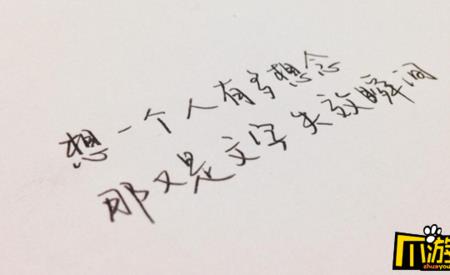 想一个人有多想念
那又是文字失效瞬间
爪游
zhuayou